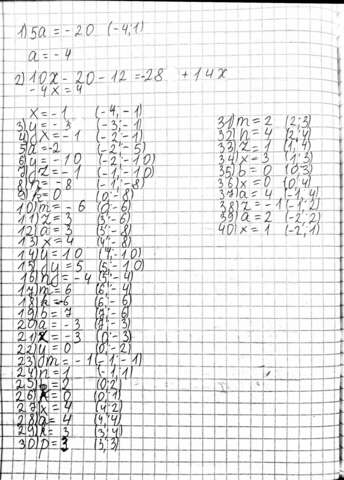 1) 5a = -20 (-4;1)
a = -4
2) 10x - 20 - 12 = -28 + 14x
-4x = 4
x = -1 (-4;-1)
3) y = -3 (-3;-1)
4) x = -1 (-2;-1)
5) a = -2 (-2;-5)
6) y = -10 (-2;-10)
7) z = -1 (-1;-10)
8) = -8 (-1;-8)
9) = 0 (0;-8)
10) m = -6 (0;-6)
11) z = 3 (3;-6)
12) a = 3 (3;-8)
13) x = 4 (4;-8)
14) y = 10 (4;-10)
15) y = 5 (5;-10)
16) n = -4 (5;-4)
17) m = 6 (6;-4)
18) k = -6 (6;-6)
19) b = 7 (7;-6)
20) a = -3 (7;-3)
21) z = -3 (0;-3)
22) y = 0 (0;-2)
23) m = -1 (-1;-1)
24) n = 1 (-1;1)
25) = 2 (0;2)
26) = 0 (0;1)
27) x = 4 (4;2)
28) a = 4 (4;4)
29) k = 3 (3;4)
30) p = 3 (3;3)
31) m = 2 (2;3)
32) n = 4 (2;4)
33) z = 1 (1;4)
34) x = 3 (1;3)
35) b = 0 (0;3)
36) x = 0 (0;4)
37) a = 4 (-1;4)
38) z = -1 (-1;2)
39) a = 2 (-2;2)
40) x = 1 (-2;1)